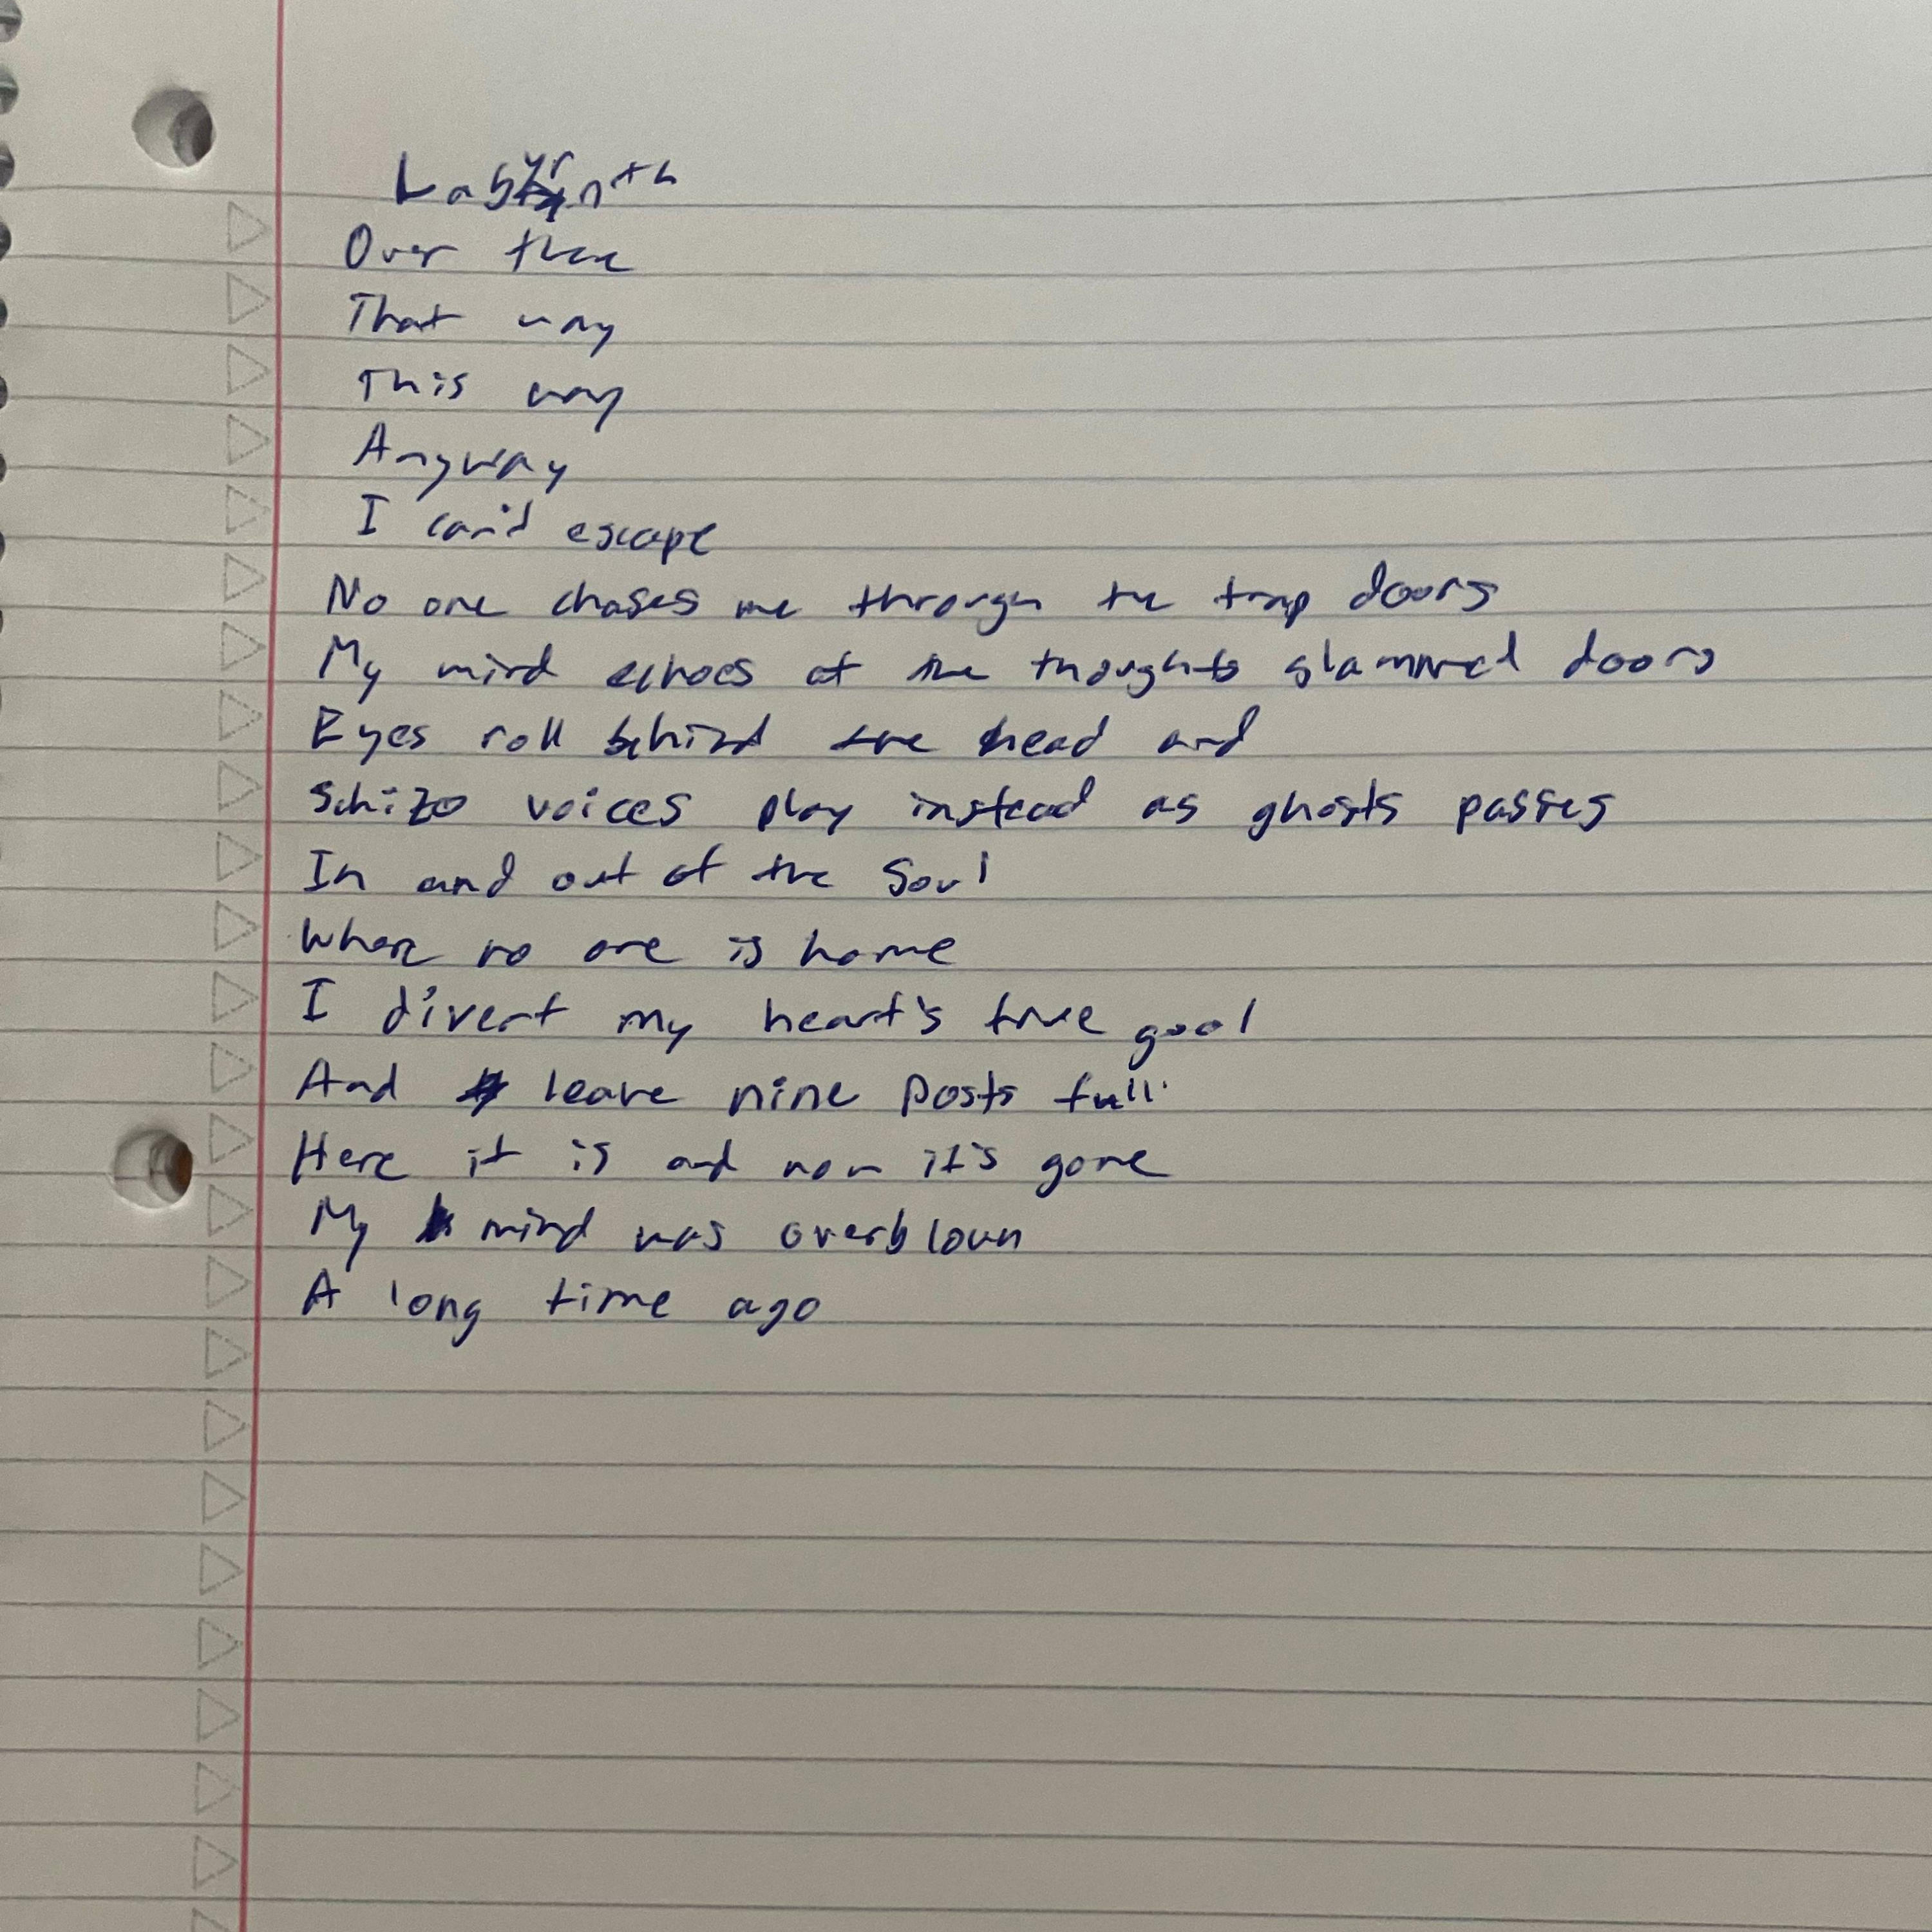 Labyrinth
Over there
That way
This way
Anyway
I can't escape
No one chases me through the trap doors
My mind echoes of the thoughts slammed doors
Eyes roll behind the head and
Schizo voices play instead as ghosts passes
In and out of the soul
Where no one is home
I divert my heart's true goal
And leave nine posts full
Here it is and now it's gone
My mind was overblown
A long time ago